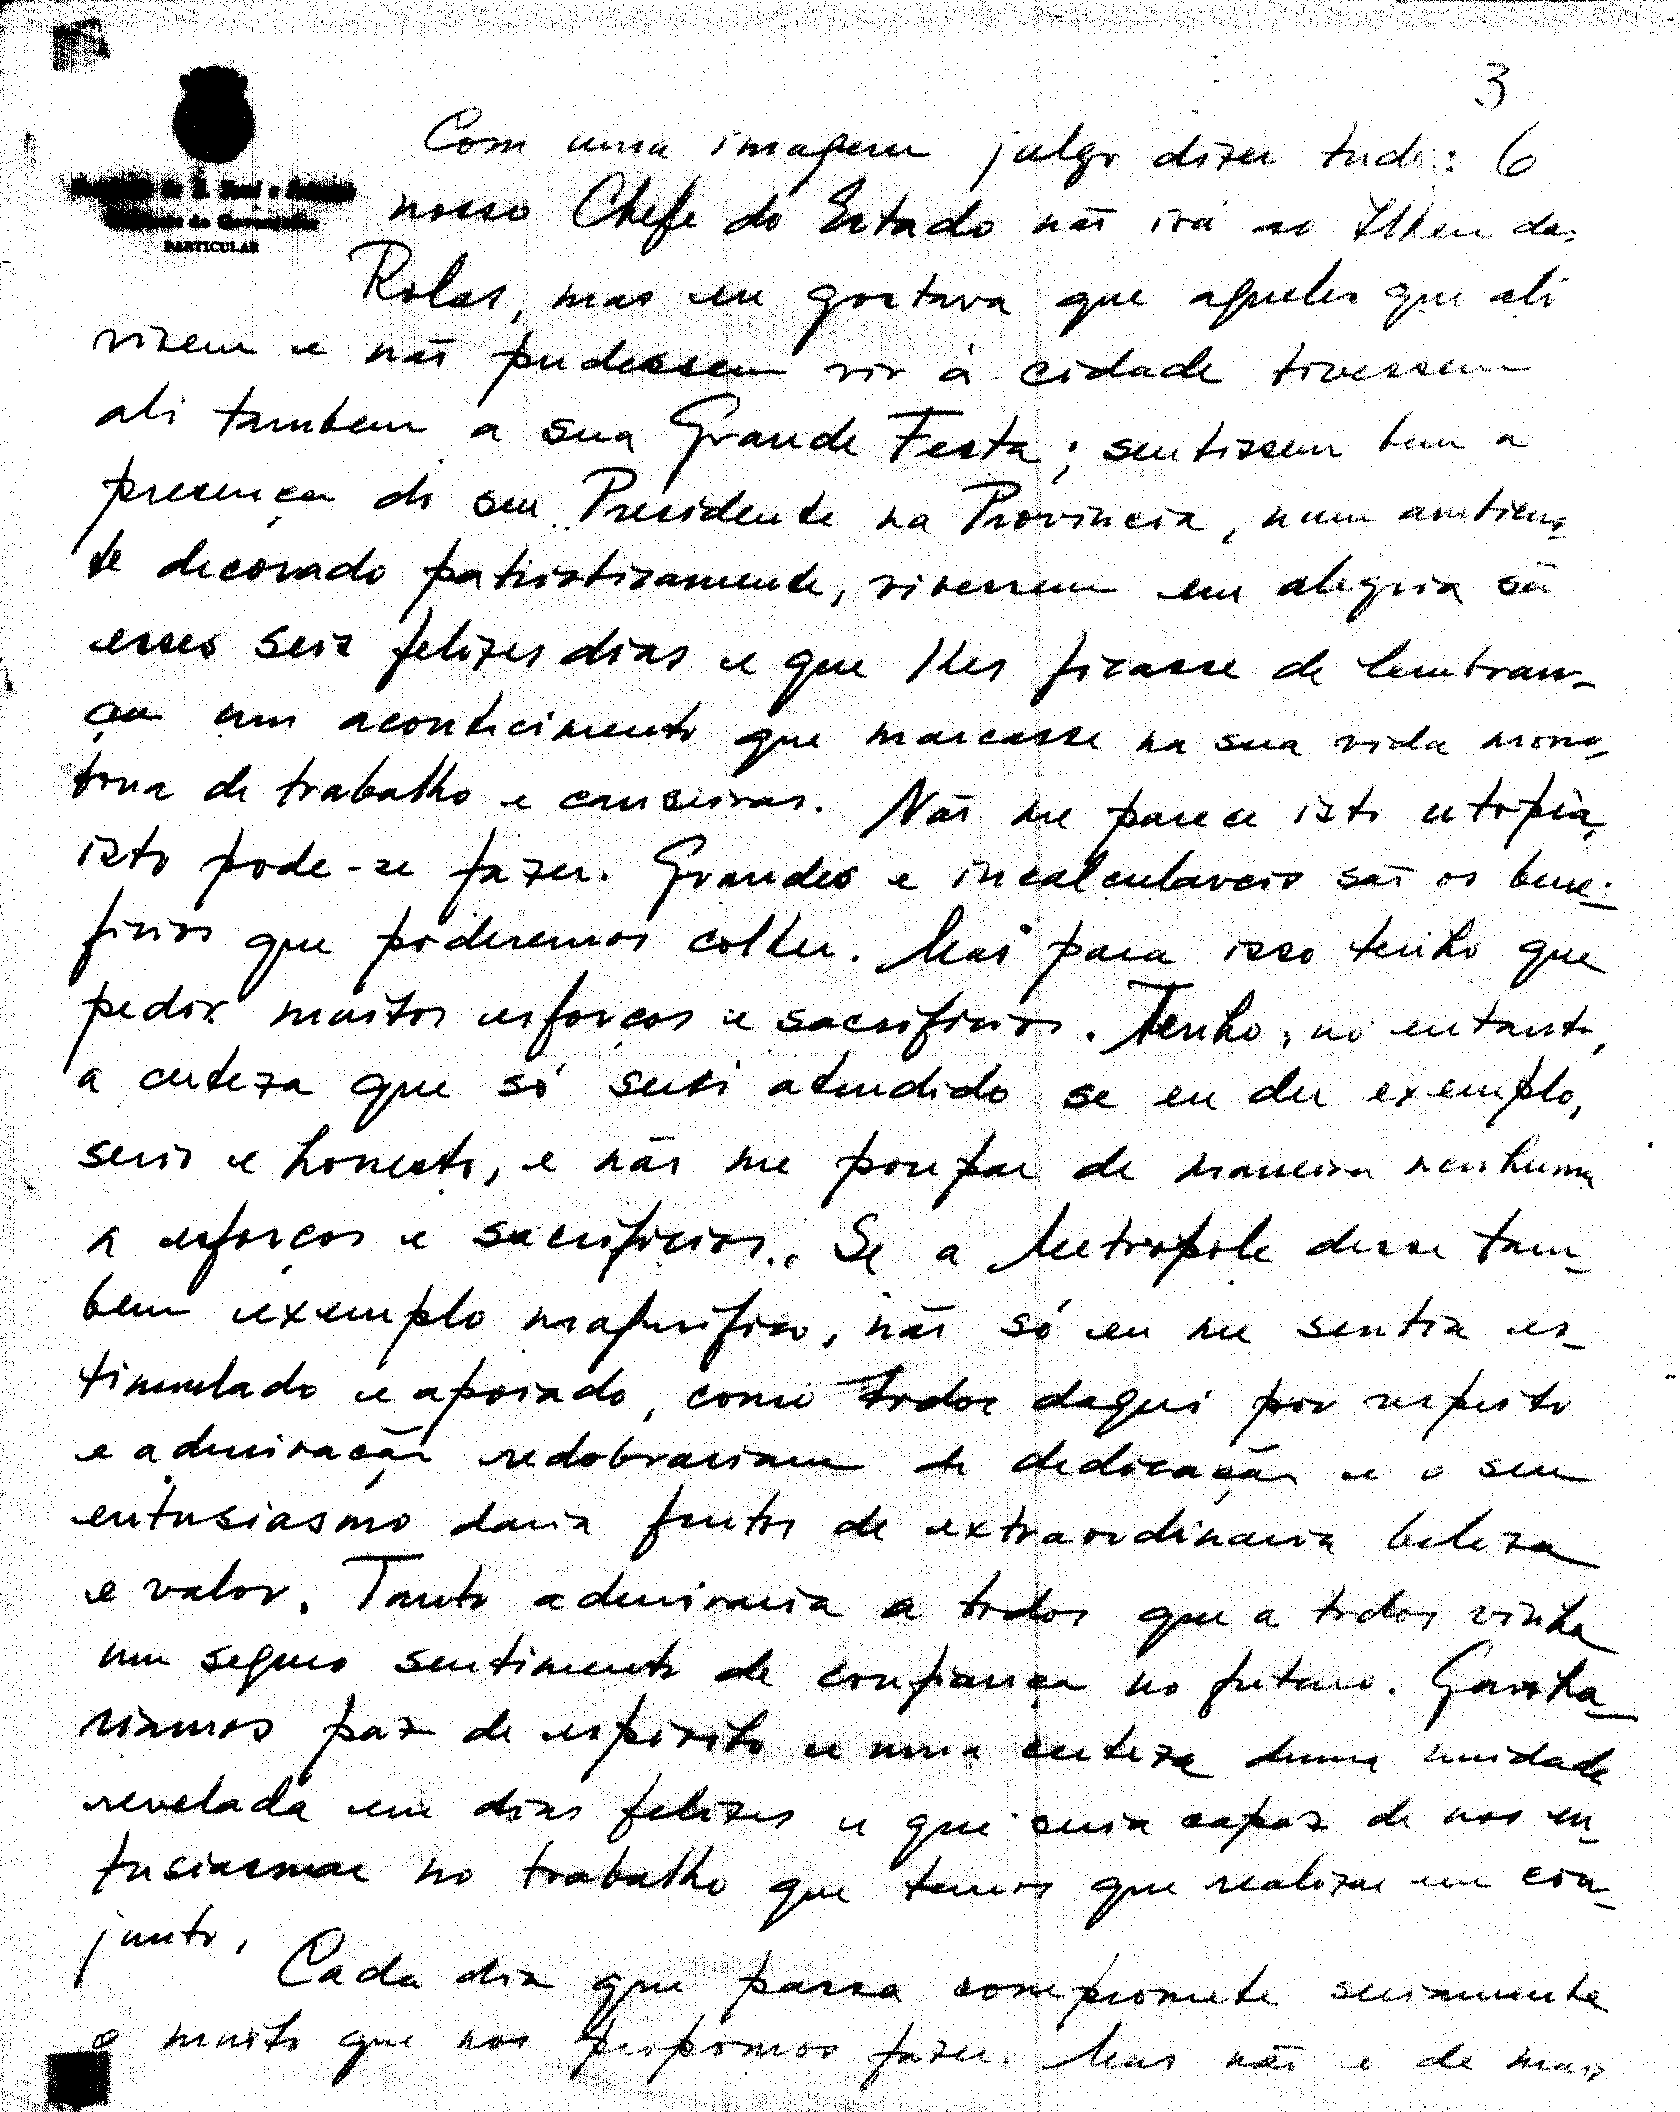 3
Com uma imagem julgo dizer tudo: O
PARTICULAR
nosso Chefe do Estado não irá ao Ilheu das
Rolas, mas eu gostava que aqueles que ali
vivem e não pudessem vir à cidade tivessem
ali tambem a sua Grande Festa; sentissem bem a
presença do seu Presidente na Provincia, num ambien-
te decorado patrioticamente, vivessem em alegria sã
esses seis felizes dias e que lhes ficasse de lembran-
ça um acontecimento que marcasse na sua vida mono-
tona de trabalho e canseiras. Não me parece isto utopia,
isto pode-se fazer. Grandes e incalculaveis são os bene-
ficios que poderemos colher. Mas para isso tenho que
pedir muitos esforços e sacrificios. Tenho, no entanto,
a certeza que só serei atendido se eu der exemplo,
serio e honesto, e não me poupar de maneira nenhuma
a esforços e sacrificios. Se a Metropole desse tam-
bem exemplo magnifico, não só eu me sentia es-
timulado e apoiado, como todos daqui por respeito
e admiração redobrariam de dedicação e o seu
entusiasmo daria frutos de extraordinaria beleza
e valor. Tanto admiraria a todos que a todos vinha
um seguro sentimento de confiança no futuro. Ganha-
riamos paz de espirito e uma certeza duma unidade
revelada em dias felizes e que seria capaz de nos en-
tusiasmar no trabalho que temos que realizar em con-
junto.
Cada dia que passa compromete seriamente
o muito que nos propomos fazer. Mas não é de mais